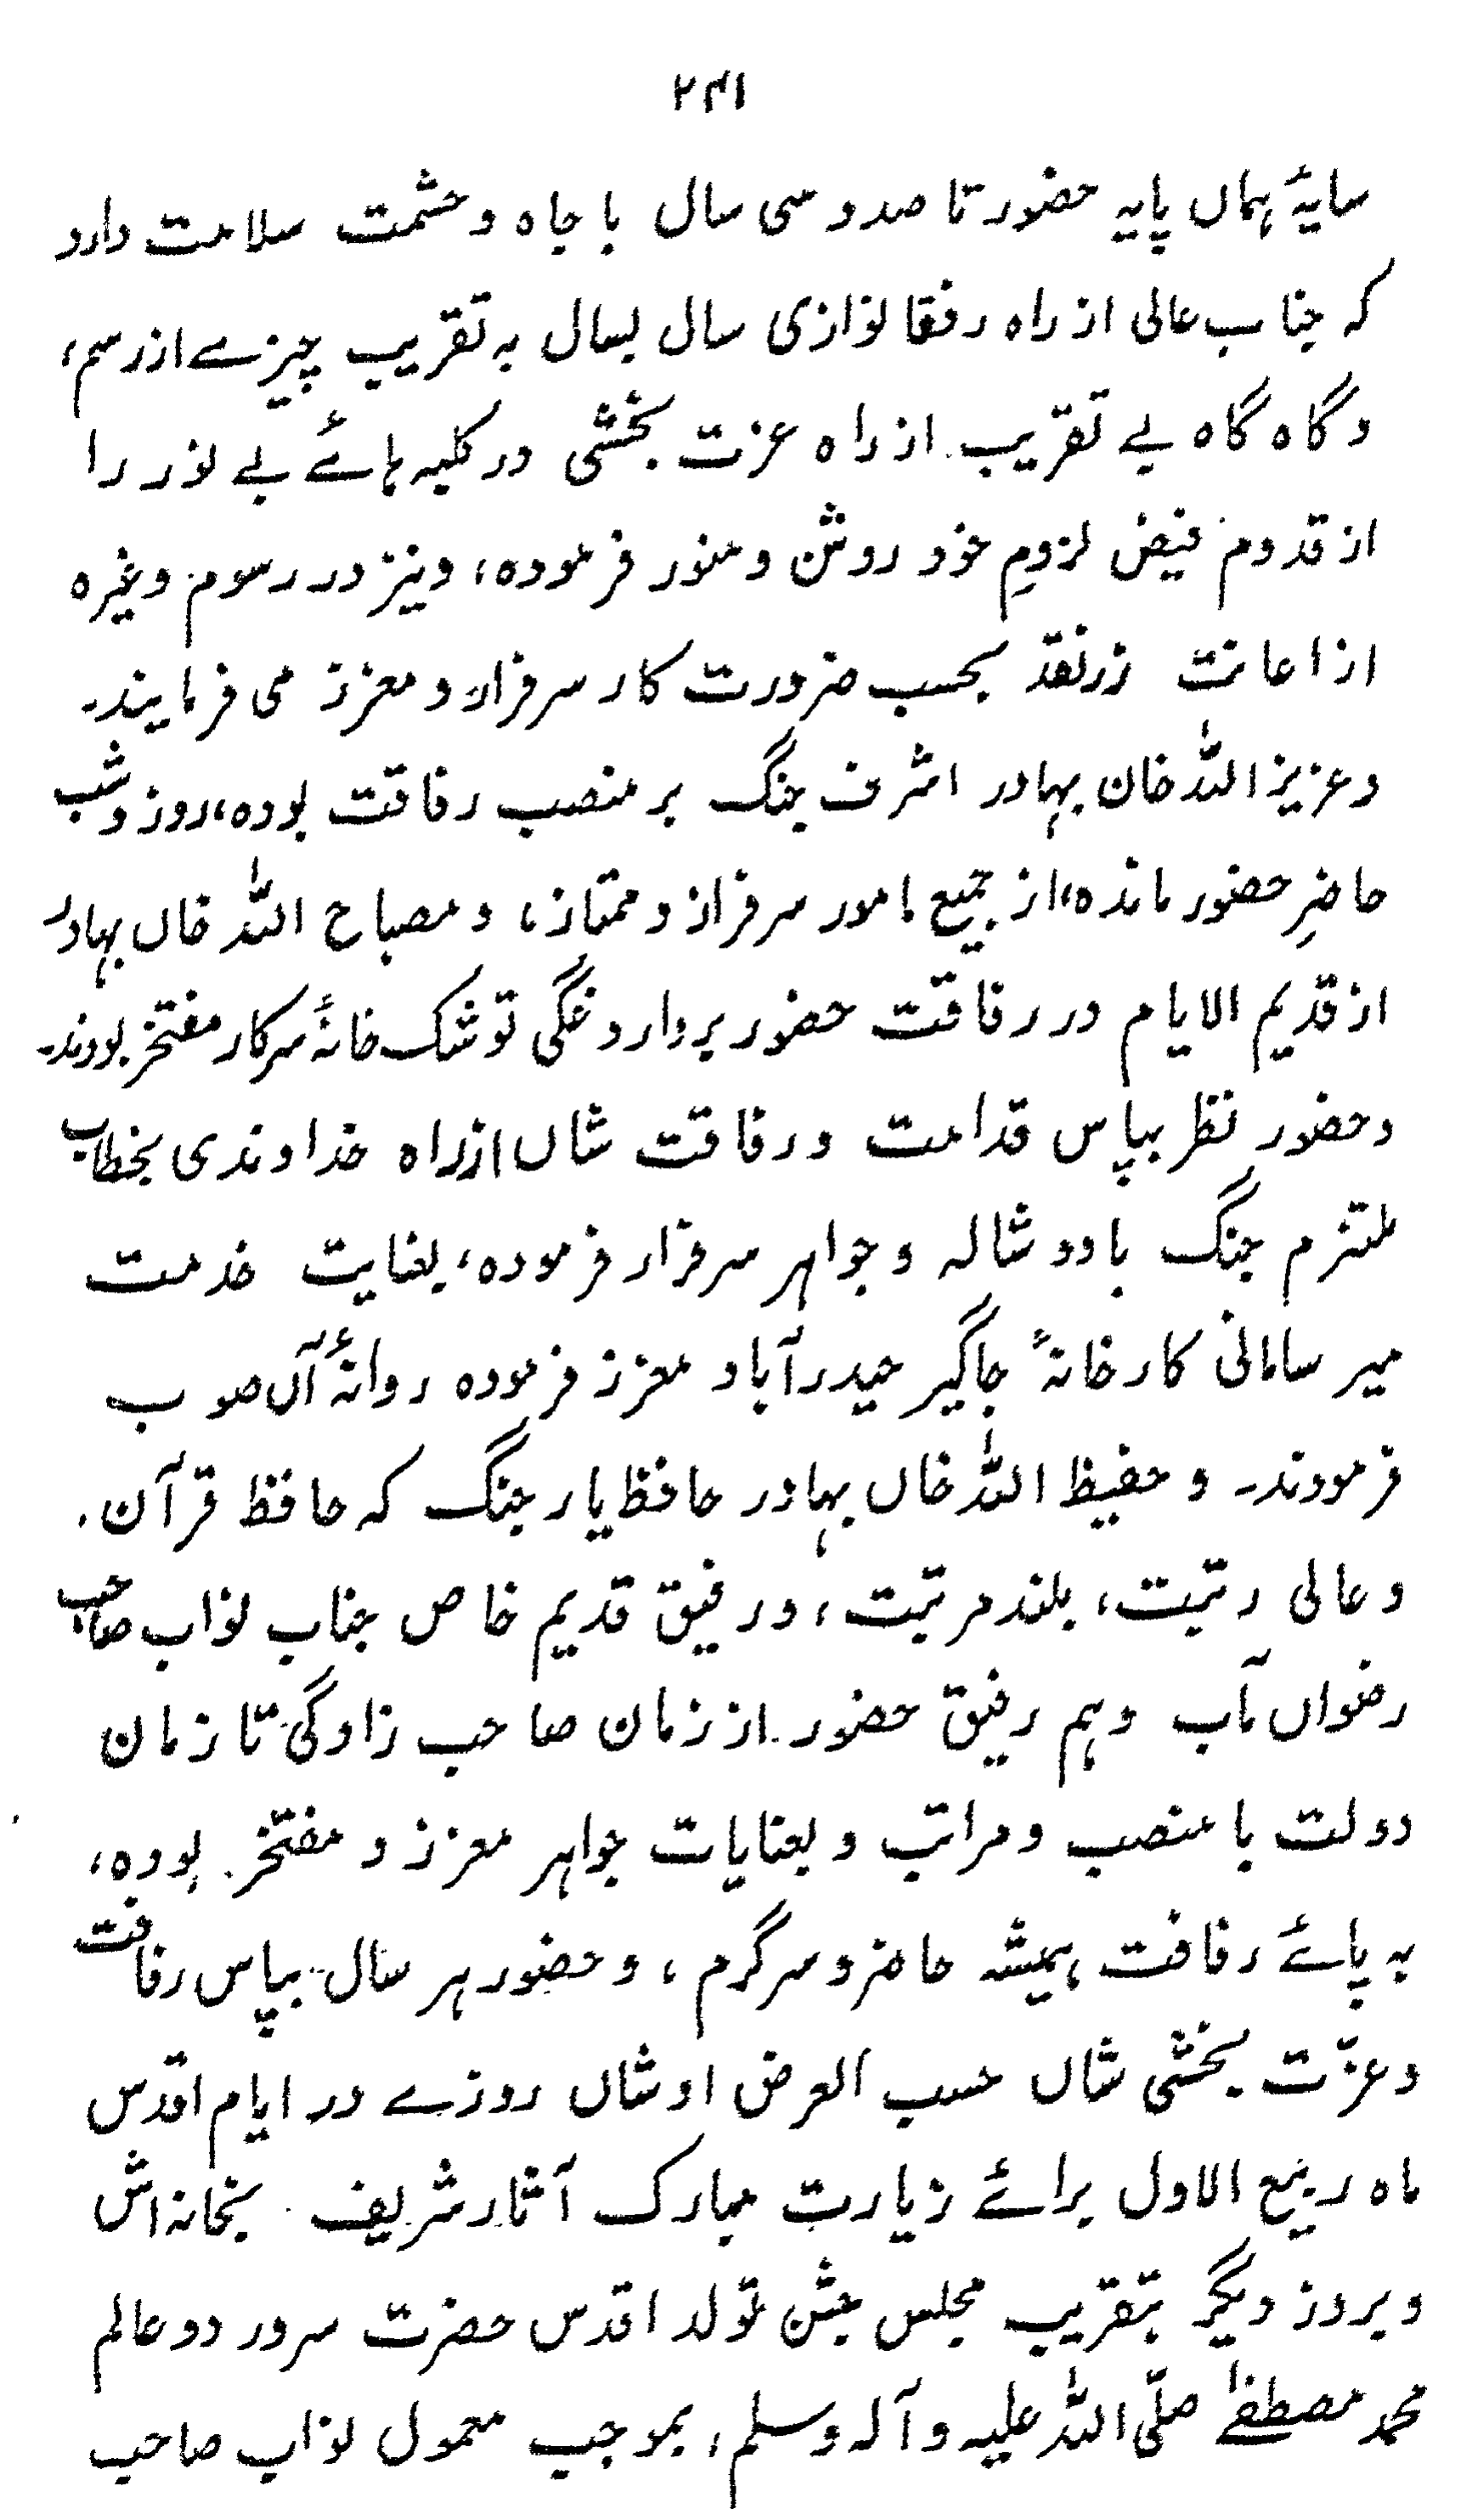 ۲۴۱
سایۂ ہماں پایہ حضور تا صد و سی سال با جاه و حشمت سلامت دارد
کہ جناب عالی از راه رفقا نوازی سال بسال بہ تقریب چیزے از رسم،
و گاه گاه بے تقریب از راه عزت بخشی در کلبہ ہائے بے نور را
از قدوم فیض لزومِ خود روشن و منور فرموده، و نیز در رسوم وغیره
از اعانت زر نقد بحسب ضرورت کار سرفراز و معزز می فرمایند۔
و عزیز اللہ خان بہادر اشرف جنگ بر منصب رفاقت بوده، روز و شب
حاضرِ حضور مانده، از جمیع امور سرفراز و ممتاز، و مصباح اللہ خاں بہادر
از قدیم الایام در رفاقت حضور بر داروغگی توشک خانۂ سرکار مفتخر بودند۔
و حضور نظر بپاس قدامت و رفاقت شاں از راه خداوندی بخطاب
ملتزم جنگ با دوشالہ و جواہر سرفراز فرموده، بعنایت خدمت
میر سامانی کارخانۂ جاگیر حیدرآباد معزز فرموده روانۂ آں صوب
فرمودند۔ و حفیظ اللہ خاں بہادر حافظ یار جنگ کہ حافظ قرآن
و عالی رتبت، بلند مرتبت، و رفیق قدیم خاص جناب نواب صاحب
رضواں مآب و ہم رفیق حضور از زمان صاحب زادگی تا زمان
دولت با منصب و مراتب و بعنایات جواہر معزز و مفتخر بوده،
بہ پائے رفاقت ہمیشہ حاضر و سرگرم، و حضور ہر سال بپاس رفاقت
و عزّت بخشی شاں حسب العرض اوشاں روزے در ایام اقدس
ماه ربیع الاول برائے زیارت مبارک آثار شریف بخانہ اش
و بروز دیگر بتقریب مجلس جشن تولد اقدس حضرت سرور دو عالم
محمد مصطفےٰ صلّی اللہ علیہ و آلہ وسلم، بموجب معمول نواب صاحب